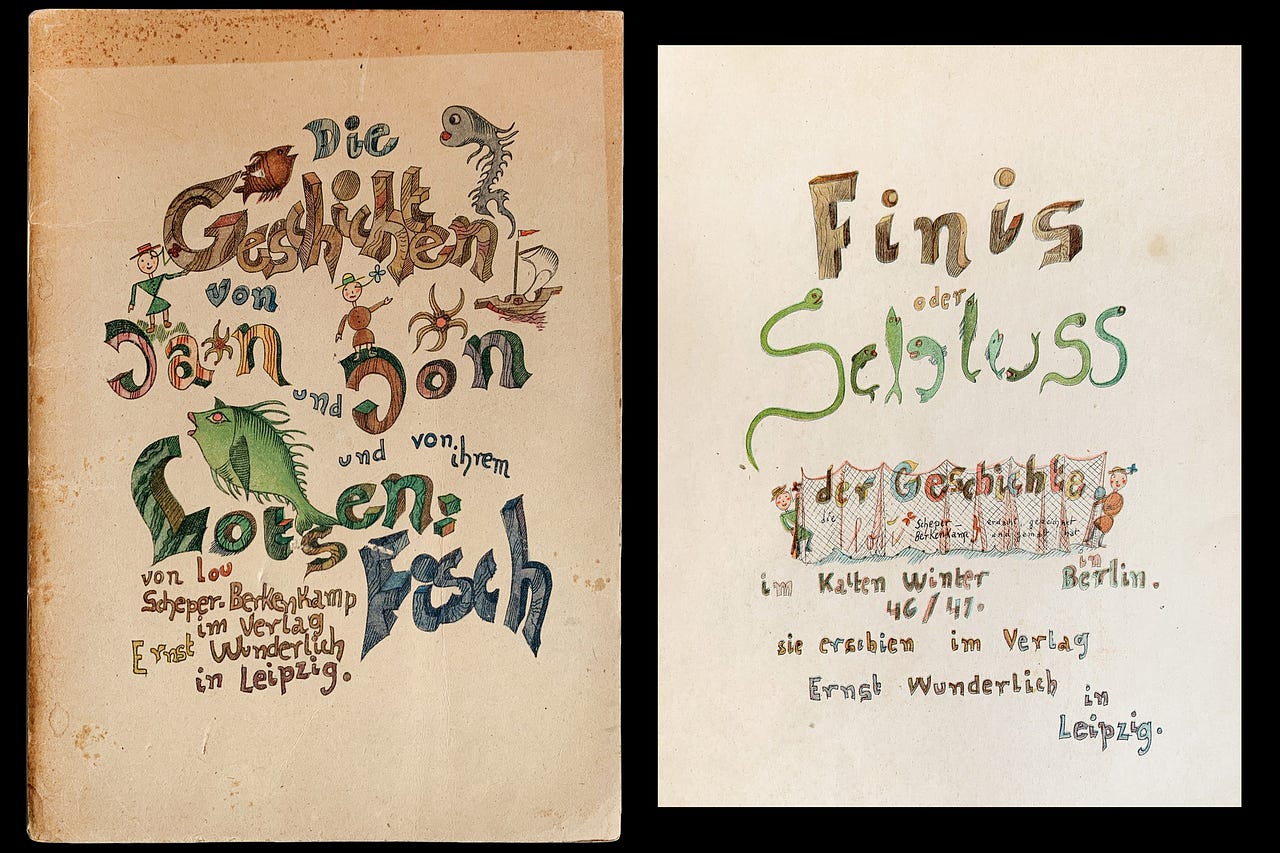 Die
Geschichten
von
Jan
und
Jon
und von
ihrem
Lotsen:
Fisch
von Lou
Scheper-Berkenkamp
im Verlag
Ernst Wunderlich
in Leipzig.
Finis
oder
Schluss
der Geschichte
die Lou Scheper- erdacht gezeichnet
Berkenkamp und gemalt hat
im Kalten Winter in
46/47. Berlin.
sie erschien im Verlag
Ernst Wunderlich in
Leipzig.